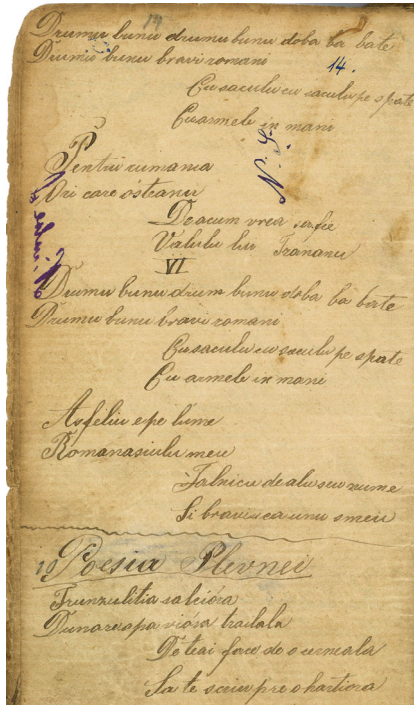 Drumu bunu drumu bunu doba ba bate
Drumu bunu bravi romani
14.
Cu saculu cu saculu pe spate
Cu armele in mani
Pentru rumania
Ori care osteanu
De acum vrea sa fie
Valulu lui Traianu
VI
Drumu bunu drum bunu doba ba bate
Drumu bunu bravi romani
Cu saculu cu saculu pe spate
Cu armele in mani
Asfeliu e pe lume
Romanasiulu meu
Falnicu de alu seu nume
Si bravu ca unu smeu
10 Poesia Plevnei
Frunzulitia salcióra
Dunare apa vióra
De teai face de o cerneala
Sa te scriu pre o hartiora